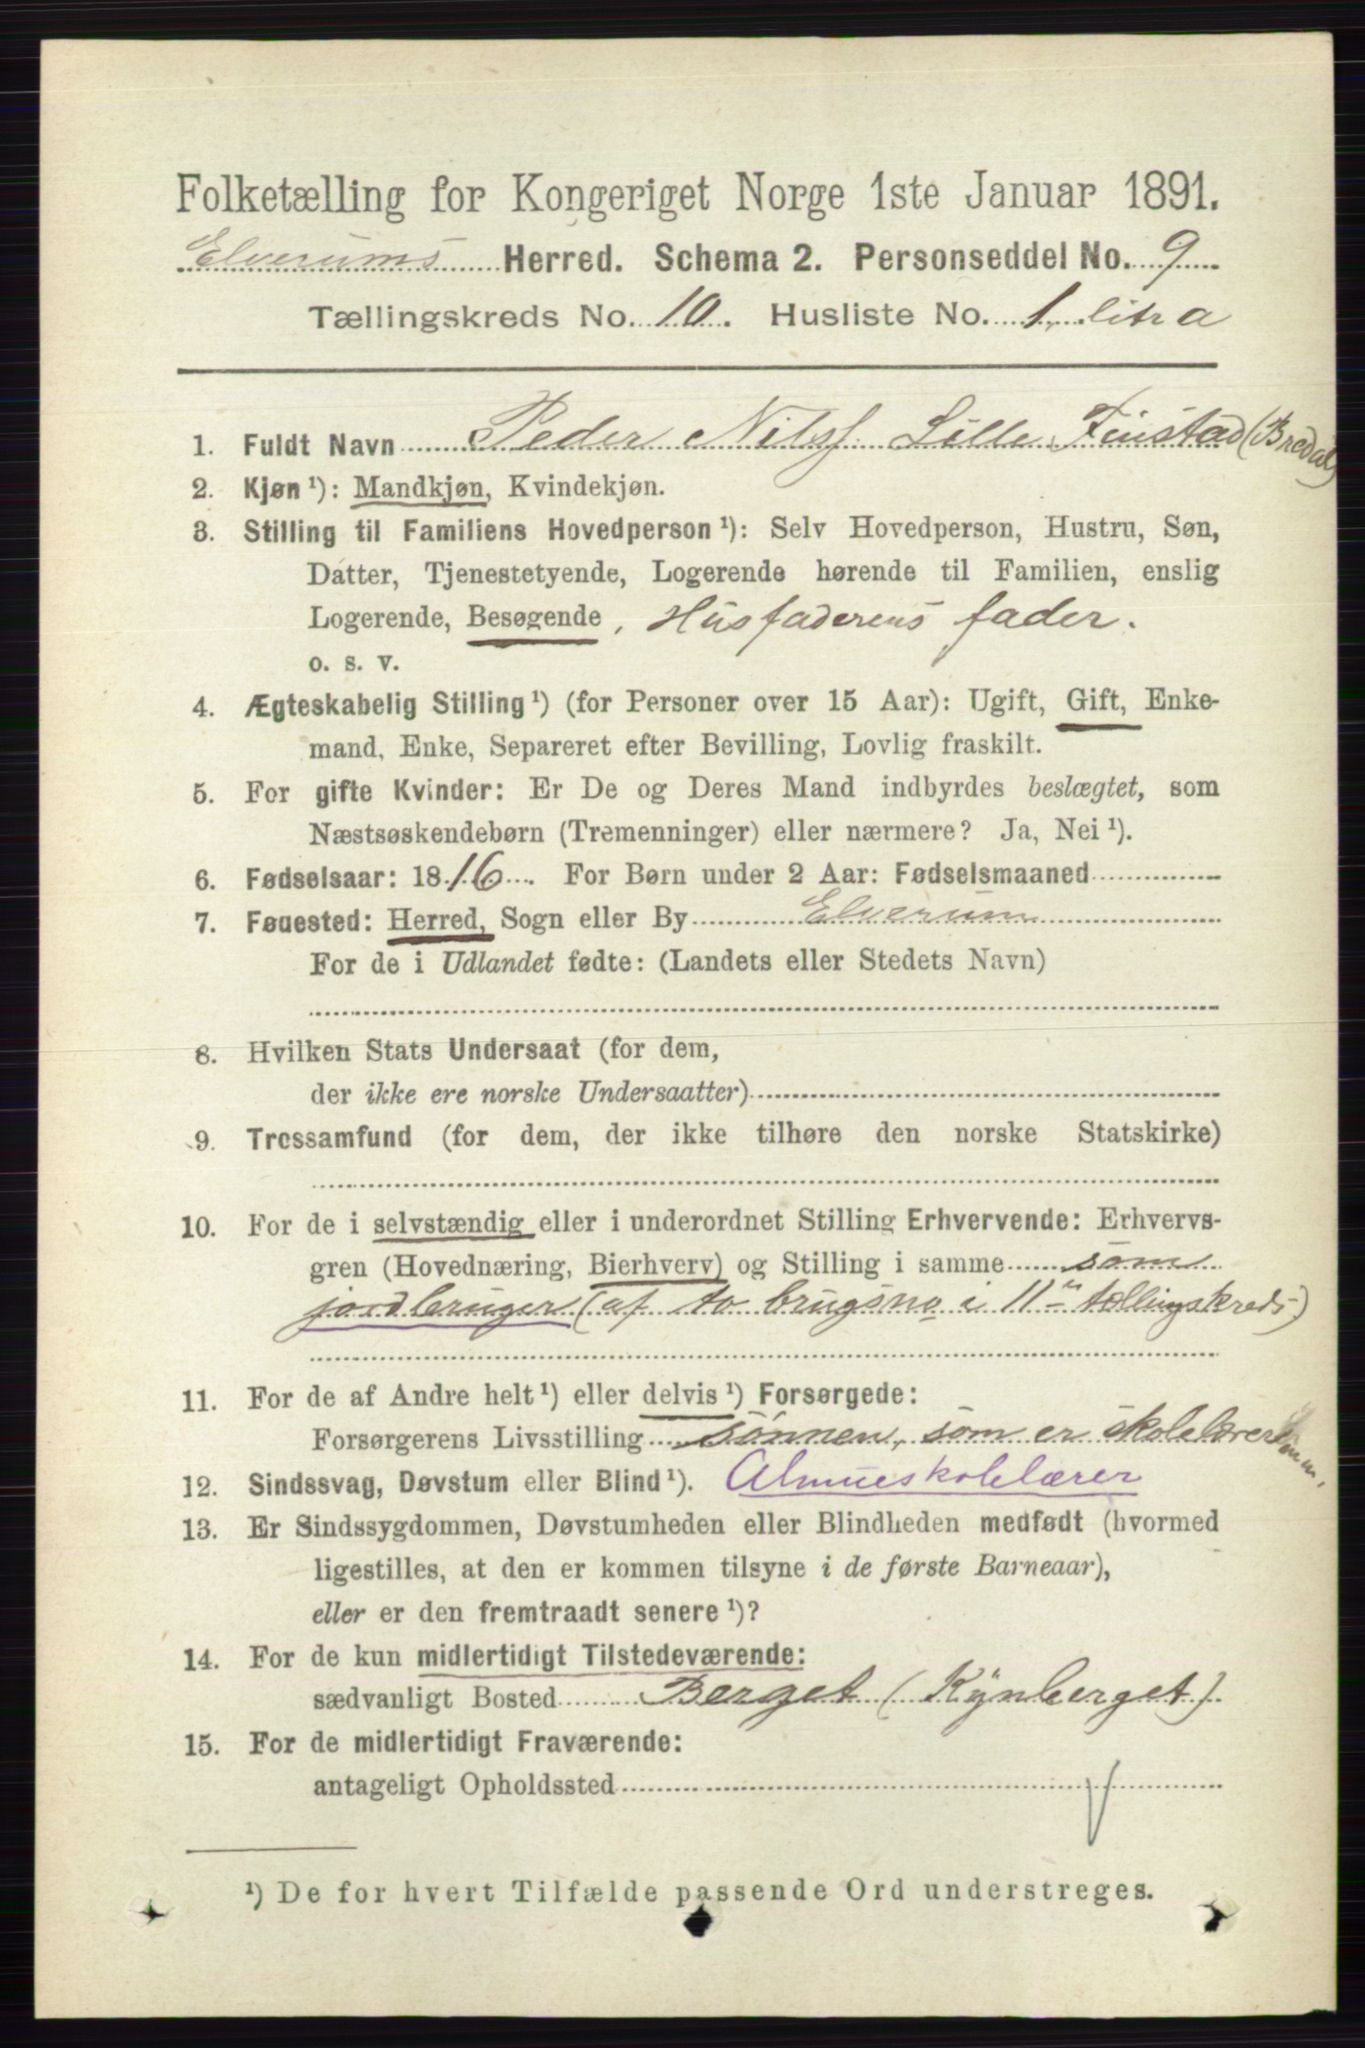 Folketælling for Kongeriget Norge 1ste Januar 1891.
Elverums Herred. Schema 2. Personseddel No. 9
Tællingskreds No. 10. Husliste No. 1, litr a
1. Fuldt Navn Peder Nilsf. Lille Finstad (Bredal)
2. Kjøn¹): Mandkjøn, Kvindekjøn.
3. Stilling til Familiens Hovedperson¹): Selv Hovedperson, Hustru, Søn,
Datter, Tjenestetyende, Logerende hørende til Familien, enslig
Logerende, Besøgende, Husfaderens fader.
o. s. v.
4. Ægteskabelig Stilling¹) (for Personer over 15 Aar): Ugift, Gift, Enke-
mand, Enke, Separeret efter Bevilling, Lovlig fraskilt.
5. For gifte Kvinder: Er De og Deres Mand indbyrdes beslægtet, som
Næstsøskendebørn (Tremenninger) eller nærmere? Ja, Nei¹).
6. Fødselsaar: 1816. For Børn under 2 Aar: Fødselsmaaned
7. Føuested: Herred, Sogn eller By Elverum
For de i Udlandet fødte: (Landets eller Stedets Navn)
8. Hvilken Stats Undersaat (for dem,
der ikke ere norske Undersaatter)
9. Trossamfund (for dem, der ikke tilhøre den norske Statskirke)
10. For de i selvstændig eller i underordnet Stilling Erhvervende: Erhvervs-
gren (Hovednæring, Bierhverv) og Stilling i samme som
jordbruger (af to brugsno i 11te tællingskreds)
11. For de af Andre helt¹) eller delvis¹) Forsørgede:
Forsørgerens Livsstilling sønnen, som er skolelærer
12. Sindssvag, Døvstum eller Blind¹). Almueskolelærer
13. Er Sindssygdommen, Døvstumheden eller Blindheden medfødt (hvormed
ligestilles, at den er kommen tilsyne i de første Barneaar),
eller er den fremtraadt senere¹)?
14. For de kun midlertidigt Tilstedeværende:
sædvanligt Bosted Berget (Kynberget)
15. For de midlertidigt Fraværende:
antageligt Opholdssted
¹) De for hvert Tilfælde passende Ord understreges.